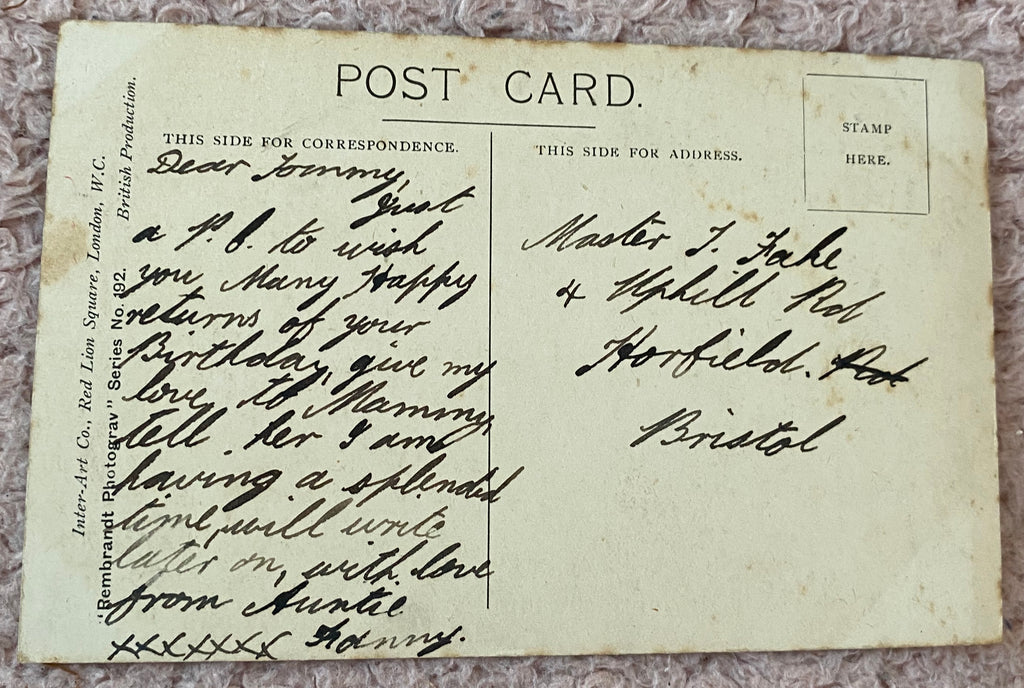 POST CARD.
THIS SIDE FOR CORRESPONDENCE.
Dear Tommy,
Just
a P.C. to wish
you Many Happy
returns of your
Birthday, give my
love to Mammy,
tell her I am
having a splended
time, will write
later on, with love
from Auntie
xxxxxxx Fanny.
THIS SIDE FOR ADDRESS.
STAMP
HERE.
Master T. Fake
4 Uphill Rd
Horfield. Rd
Bristol
Inter-Art Co., Red Lion Square, London, W.C.
British Production.
"Rembrandt Photograv" Series No. 192.